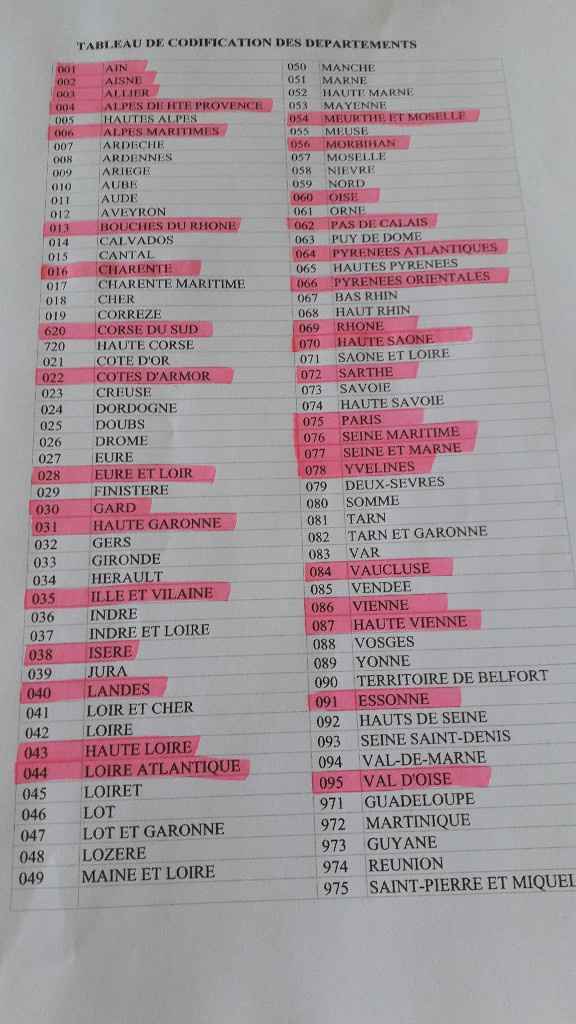 TABLEAU DE CODIFICATION DES DEPARTEMENTS
001 AIN
002 AISNE
003 ALLIER
004 ALPES DE HTE PROVENCE
005 HAUTES ALPES
006 ALPES MARITIMES
007 ARDECHE
008 ARDENNES
009 ARIEGE
010 AUBE
011 AUDE
012 AVEYRON
013 BOUCHES DU RHONE
014 CALVADOS
015 CANTAL
016 CHARENTE
017 CHARENTE MARITIME
018 CHER
019 CORREZE
620 CORSE DU SUD
720 HAUTE CORSE
021 COTE D'OR
022 COTES D'ARMOR
023 CREUSE
024 DORDOGNE
025 DOUBS
026 DROME
027 EURE
028 EURE ET LOIR
029 FINISTERE
030 GARD
031 HAUTE GARONNE
032 GERS
033 GIRONDE
034 HERAULT
035 ILLE ET VILAINE
036 INDRE
037 INDRE ET LOIRE
038 ISERE
039 JURA
040 LANDES
041 LOIR ET CHER
042 LOIRE
043 HAUTE LOIRE
044 LOIRE ATLANTIQUE
045 LOIRET
046 LOT
047 LOT ET GARONNE
048 LOZERE
049 MAINE ET LOIRE
050 MANCHE
051 MARNE
052 HAUTE MARNE
053 MAYENNE
054 MEURTHE ET MOSELLE
055 MEUSE
056 MORBIHAN
057 MOSELLE
058 NIEVRE
059 NORD
060 OISE
061 ORNE
062 PAS DE CALAIS
063 PUY DE DOME
064 PYRENEES ATLANTIQUES
065 HAUTES PYRENEES
066 PYRENEES ORIENTALES
067 BAS RHIN
068 HAUT RHIN
069 RHONE
070 HAUTE SAONE
071 SAONE ET LOIRE
072 SARTHE
073 SAVOIE
074 HAUTE SAVOIE
075 PARIS
076 SEINE MARITIME
077 SEINE ET MARNE
078 YVELINES
079 DEUX-SEVRES
080 SOMME
081 TARN
082 TARN ET GARONNE
083 VAR
084 VAUCLUSE
085 VENDEE
086 VIENNE
087 HAUTE VIENNE
088 VOSGES
089 YONNE
090 TERRITOIRE DE BELFORT
091 ESSONNE
092 HAUTS DE SEINE
093 SEINE SAINT-DENIS
094 VAL-DE-MARNE
095 VAL D'OISE
971 GUADELOUPE
972 MARTINIQUE
973 GUYANE
974 REUNION
975 SAINT-PIERRE ET MIQUEL